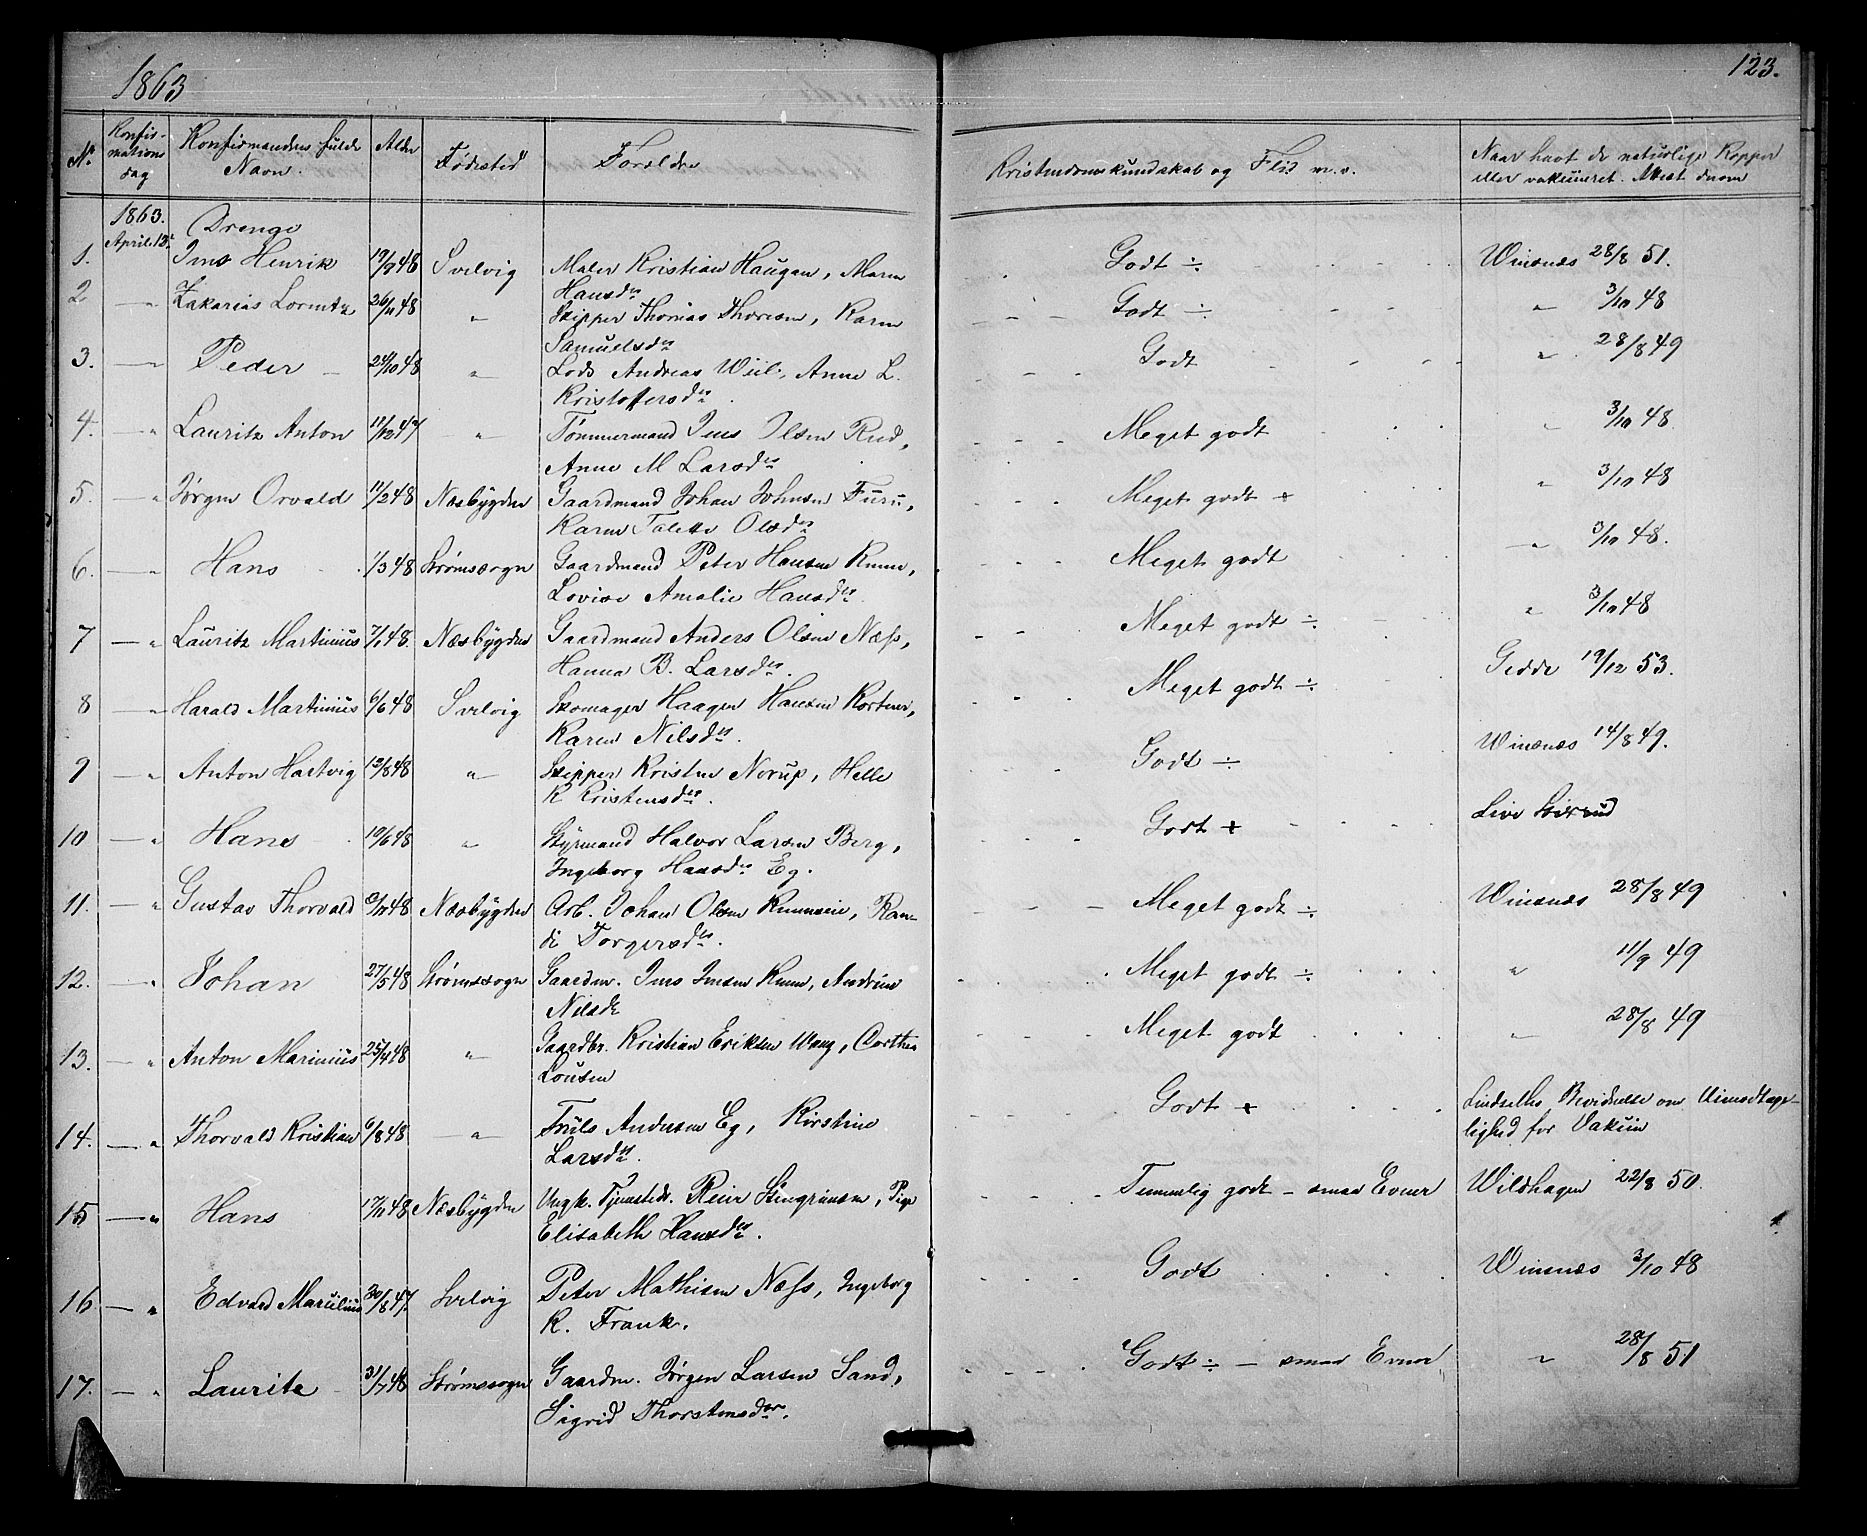 1863
123.
No Konfirmationsdag Konfirmandens fulde Navn. Alder Fødested Forældre Kristendomskundskab og Flid m. v. Naar havt de naturlige Kopper eller vakcineret. Attest derom
1863. April 12. Drenge
1. Jens Henrik 19/9 48 Svelvig Maler Kristian Haugan, Maren Hansdr Godt ÷ Winsnes 28/8 51.
2 — " Zakarias Lorentz 26/11 48 " Skipper Thomas Thoresen, Karen Samuelsdr Godt ÷ " 3/10 48
3. — " Peder 24/10 48 " Lods Andreas Wiil, Anne L. Kristoffersdr. Godt " 28/8 49
4. — " Lauritz Anton 11/12 47 " Tømmermand Jens Olsen Rud, Anne M Larsdr Meget godt " 3/10 48.
5. — " Jørgen Orvald 11/2 48 Næsbygden Gaardmand Johan Johnsen Furu, Karen Talette Olsdr Meget godt + " 3/10 48
6. — " Hans 1/3 48 Strømsogn Gaardmand Peter Hansen , Lovise Amalie Hansdr. Meget godt " 3/10 48.
7 — " Lauritz Martinius 7/1 48. Næsbygden Gaardmand Anders Olsen Næss, Hanna B. Larsdr. Meget godt ÷ " 3/10 48
8 — " Harald Martinius 6/6 48 Svelvig Skomager Haagen Hansen , Karen Nilsdr. Meget godt ÷ Gedde 19/12 53.
9 — " Anton Hartvig 12/8 48 " Skipper Kristen Norup, Helle K Kristensdr. Godt ÷ Winsnes 14/8 49.
10 — " Hans 19/6 48 " Styrmand Halvor Larsen Berg, Ingeborg Hansdr Eg. Godt +
11. — " Gustav Thorvald 48 Næsbygden Arb. Johan Olsen , Randi Torgersdr. Meget godt ÷ Winsnes 28/8 49
12. — " Johan 27/5 48 Strømsogn Gaardm. Jens Jensen , Andrine Nilsdr Meget godt ÷ " 11/9 49
13. — " Anton Marinius 25/4 48 " Gaardbr. Kristian Eriksen Wang, Dorthea Meget godt " 28/8 49
14. — " Thorvald Kristian 6/8 48 — " Andersen Eg, Kirstine Larsdr. Godt + Lindseths Bevidnelse om Uimodtagelighed for Vakcin
15 — " Hans 17/11 48 Næsbygden Ungk. Tjenestedr. Reier Stengrimsen, Pige Elisabeth Hansdr. Temmelig godt – smaa Evner Wildhagen 22/8 50.
16 — " Edvard 30/8 47. Svelvig Peter Mathisen Næss, Ingeborg K. Frank. Godt Winsnes 3/10 48
17. — " Lauritz 31/7 48 Strømsogn Gaardm. Jørgen Larsen Sand, Sigrid Thorstensdr. Godt ÷ – smaa Evner " 28/8 51